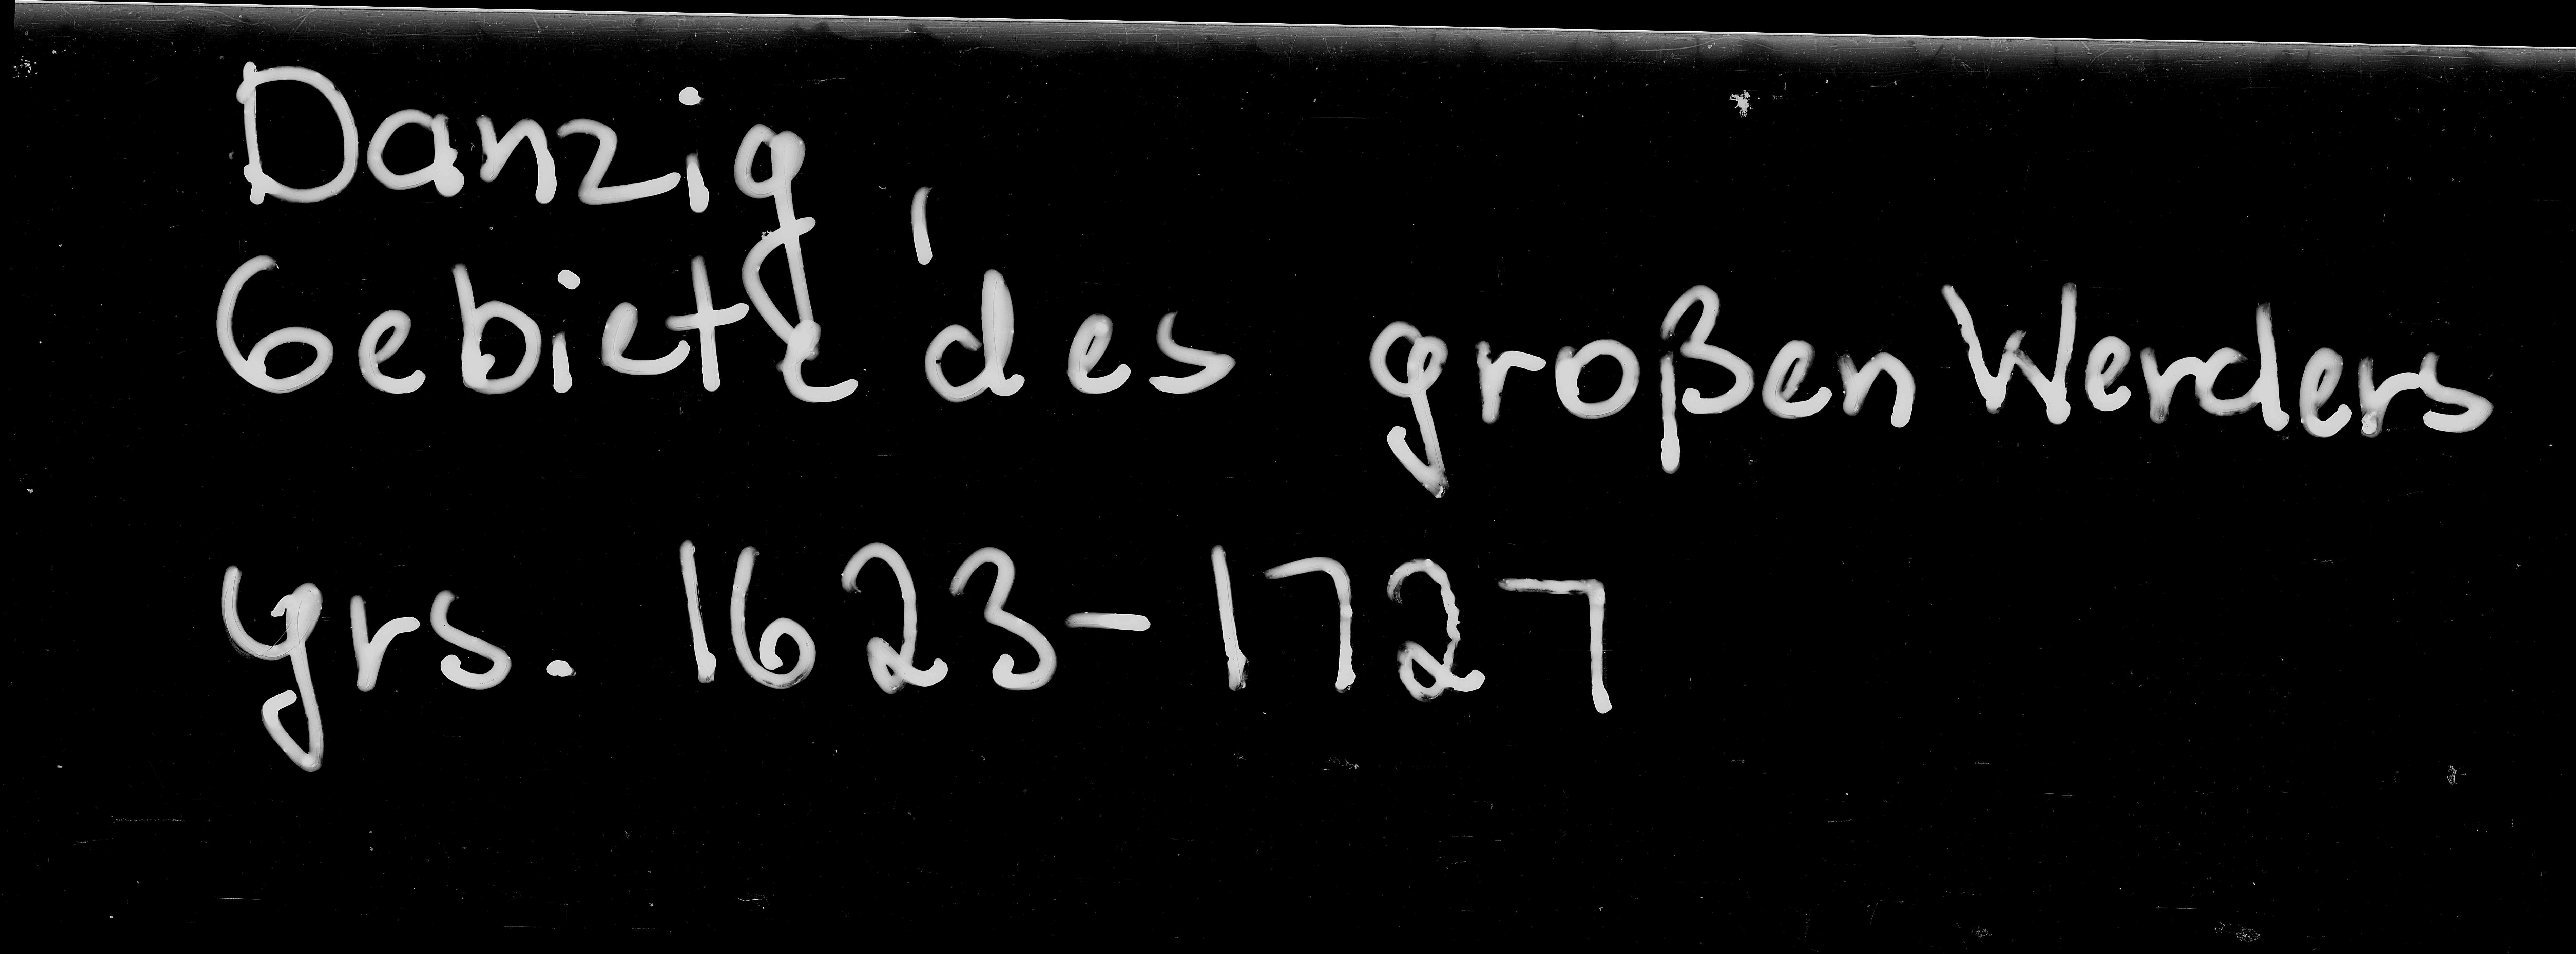 Danzig,
Gebiete des großen Werders
yrs. 1623-1727